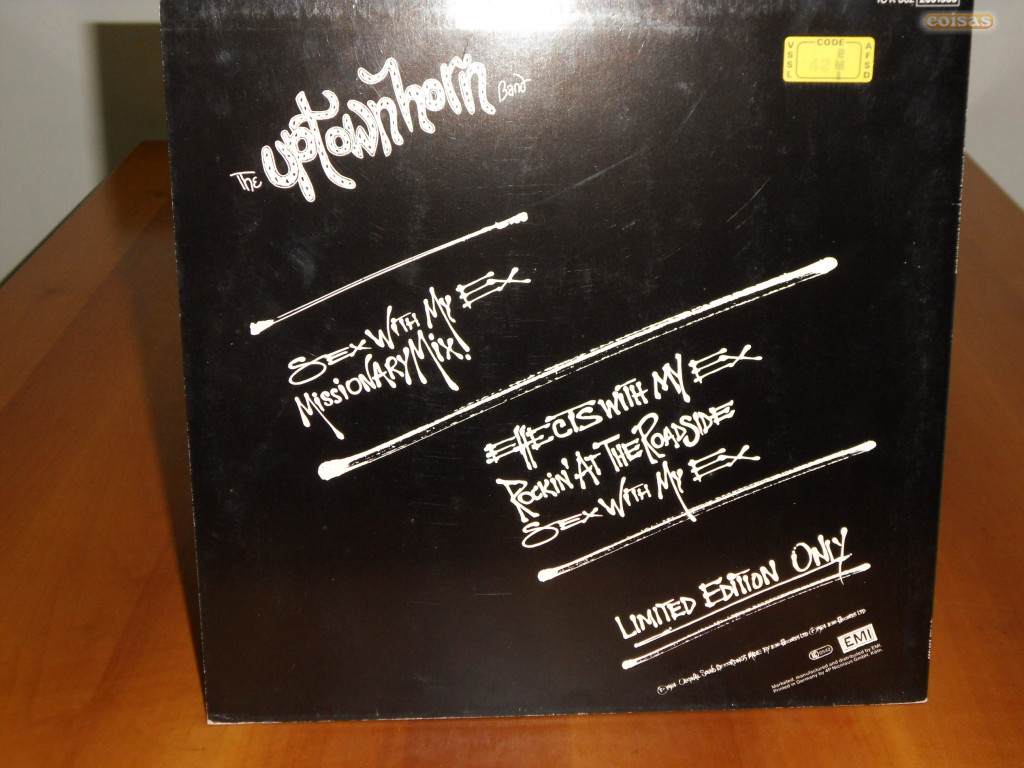 coisas
CODE
The uptownhorn Band
SEX WITH MY EX
MISSIONARY MIX!
EFFECTS WITH MY EX
ROCKIN' AT THE ROADSIDE
SEX WITH MY EX
LIMITED EDITION ONLY
EMI
Marketed, manufactured and distributed by EMI.
Printed in Germany by 4P Nicolaus GmbH, Köln.